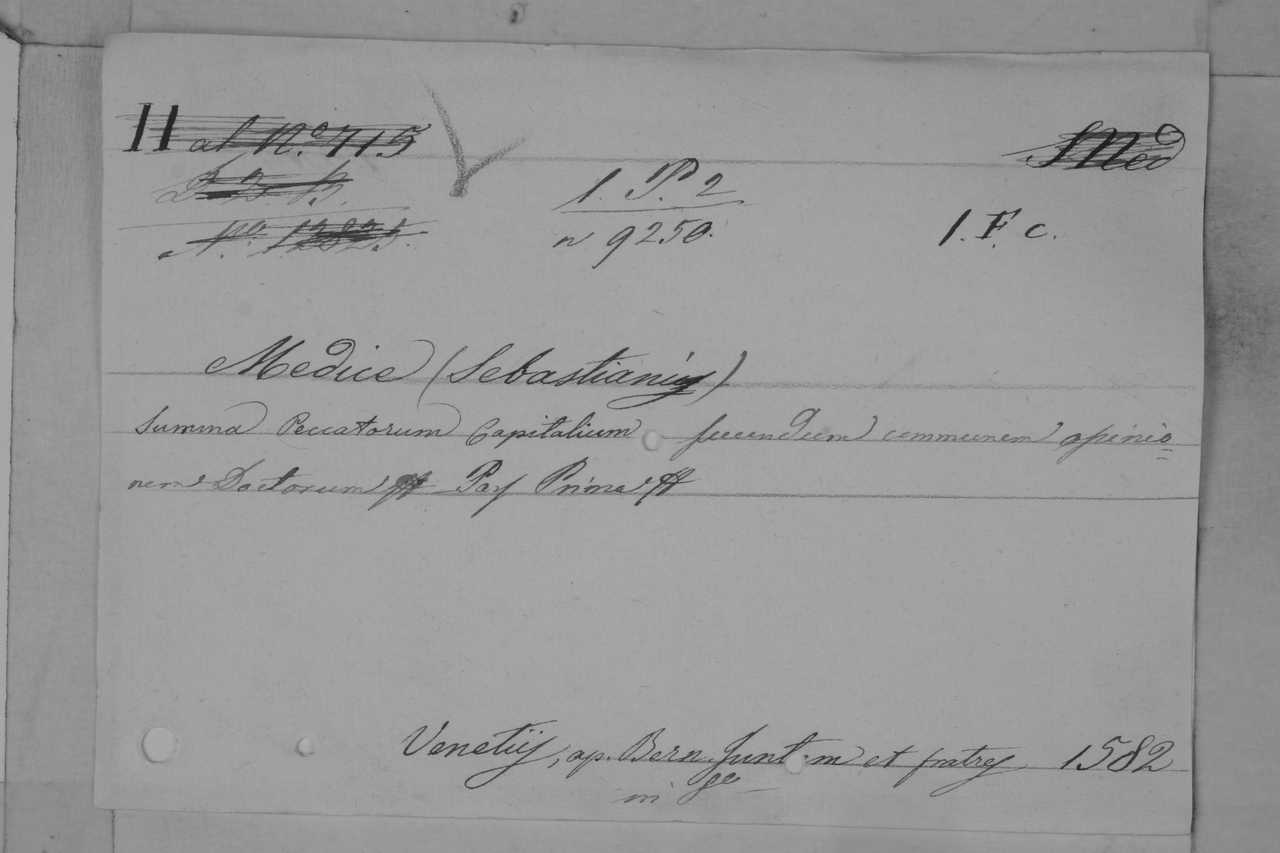 11 al N.º 715
Med
N.º 12825.
1. P. 2
n 9250.
1. F. c.
Medice (Sebastianus)
Summa Peccatorum Capitalium secundum communem opinio=
nem Doctorum Pars Prima
Venetijs, ap. Bern. Juntam et fratres 1582
in 8º